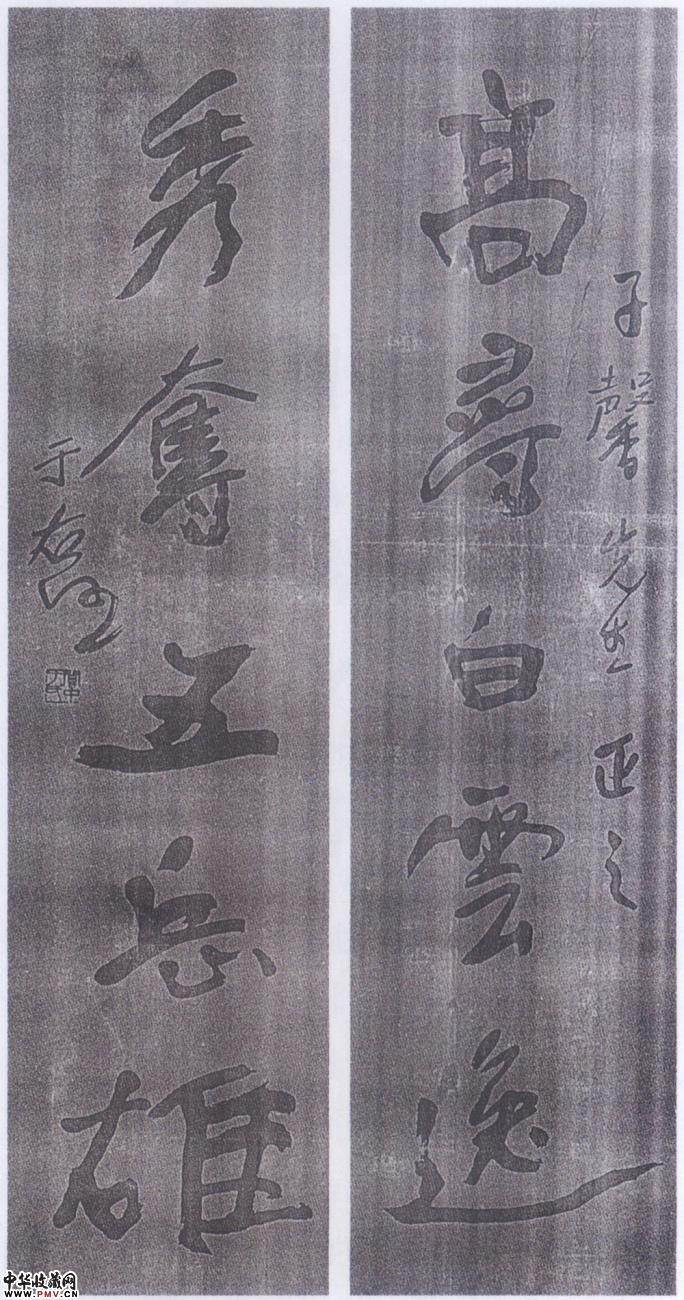 子馨先生正之
高尋白雲逸
秀奪五岳雄
于右任
關中于氏
中华收藏网
WWW.PMV.CN